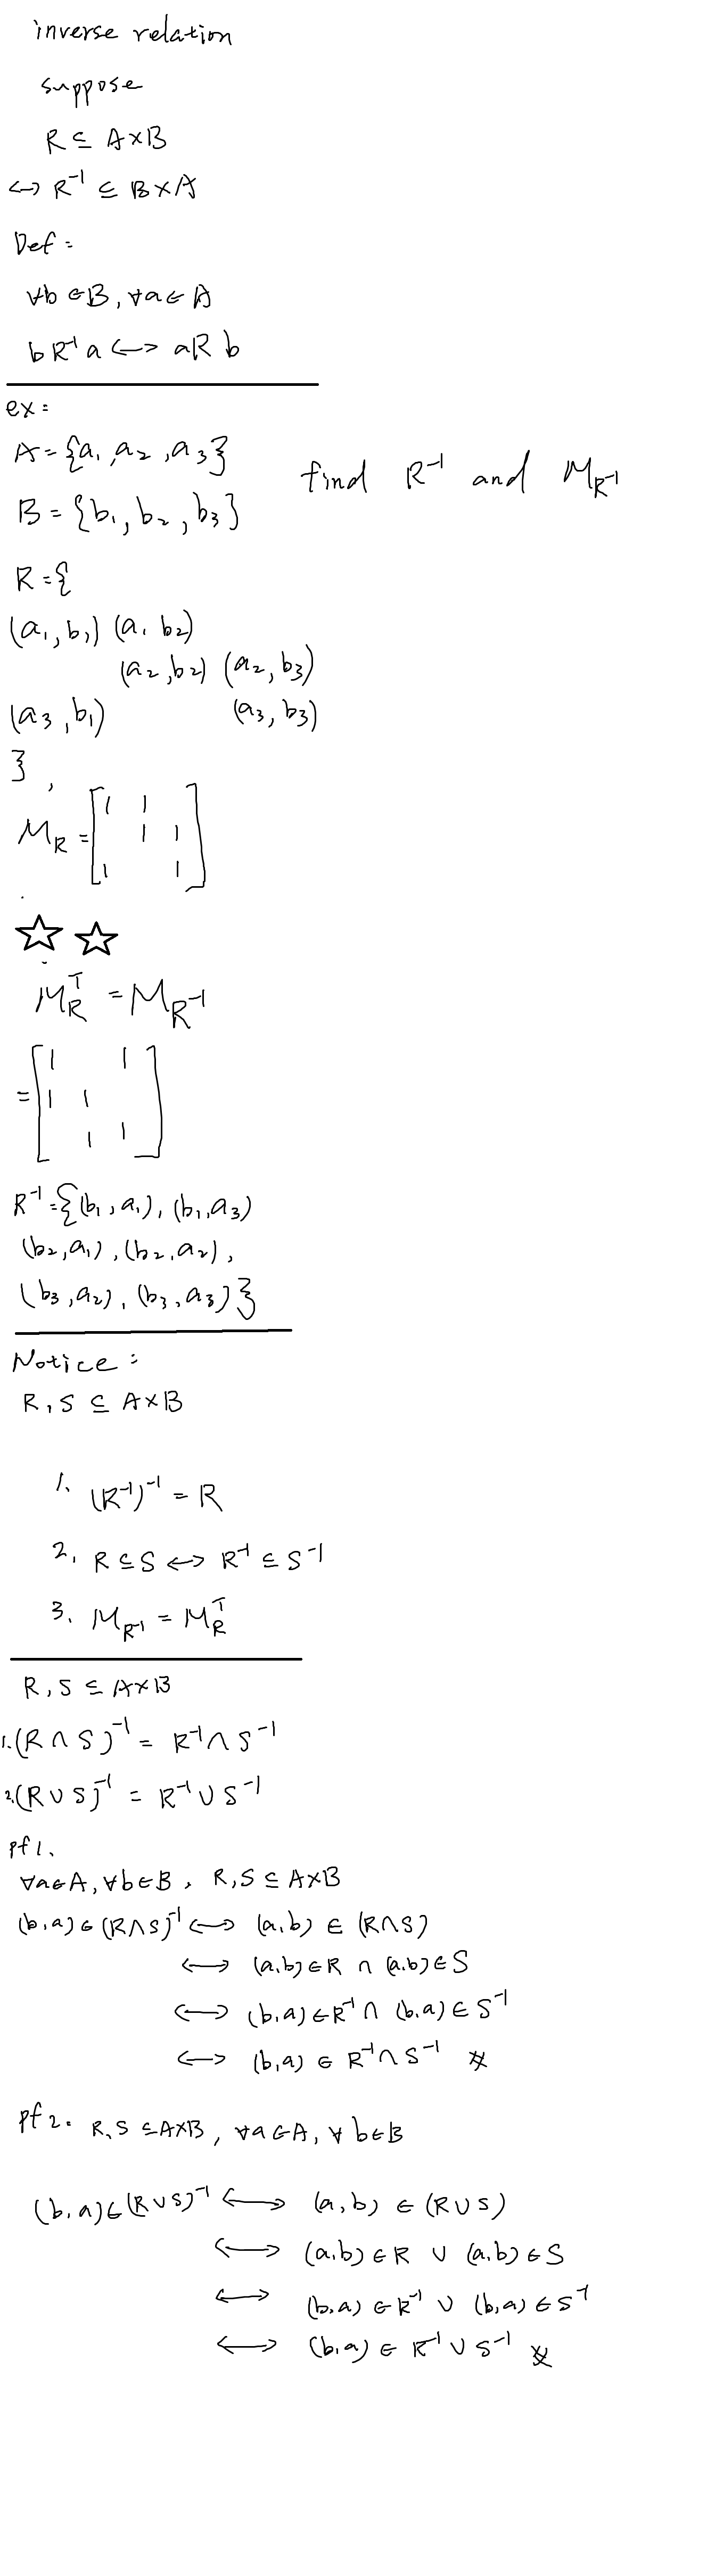 inverse relation
suppose
R ⊆ A×B
↔ R⁻¹ ⊆ B×A
Def:
∀b∈B, ∀a∈A
b R⁻¹ a ↔ aRb
ex:
A={a₁,a₂,a₃}
find R⁻¹ and M_R⁻¹
B={b₁,b₂,b₃}
R={
(a₁,b₁) (a₁ b₂)
(a₂,b₂) (a₂,b₃)
(a₃,b₁) (a₃,b₃)
},
M_R = [1 1
1 1
1 1]
☆ ☆
M_R^T = M_R⁻¹
= [1 1
1 1
1 1]
R⁻¹={(b₁,a₁), (b₁,a₃)
(b₂,a₁), (b₂,a₂),
(b₃,a₂), (b₃,a₃)}
Notice:
R,S ⊆ A×B
1. (R⁻¹)⁻¹ = R
2. R⊆S ↔ R⁻¹ ⊆ S⁻¹
3. M_R⁻¹ = M_R^T
R,S ⊆ A×B
1.(R∩S)⁻¹ = R⁻¹∩S⁻¹
2.(R∪S)⁻¹ = R⁻¹∪S⁻¹
pf1.
∀a∈A, ∀b∈B, R,S ⊆ A×B
(b,a)∈(R∩S)⁻¹ ↔ (a,b) ∈ (R∩S)
↔ (a,b)∈R ∩ (a,b)∈S
↔ (b,a)∈R⁻¹ ∩ (b,a)∈S⁻¹
↔ (b,a) ∈ R⁻¹∩S⁻¹ ※
pf2. R,S ⊆A×B, ∀a∈A, ∀b∈B
(b,a)∈(R∪S)⁻¹ ↔ (a,b) ∈ (R∪S)
↔ (a,b)∈R ∪ (a,b)∈S
↔ (b,a)∈R⁻¹ ∪ (b,a)∈S⁻¹
↔ (b,a) ∈ R⁻¹∪S⁻¹ ※